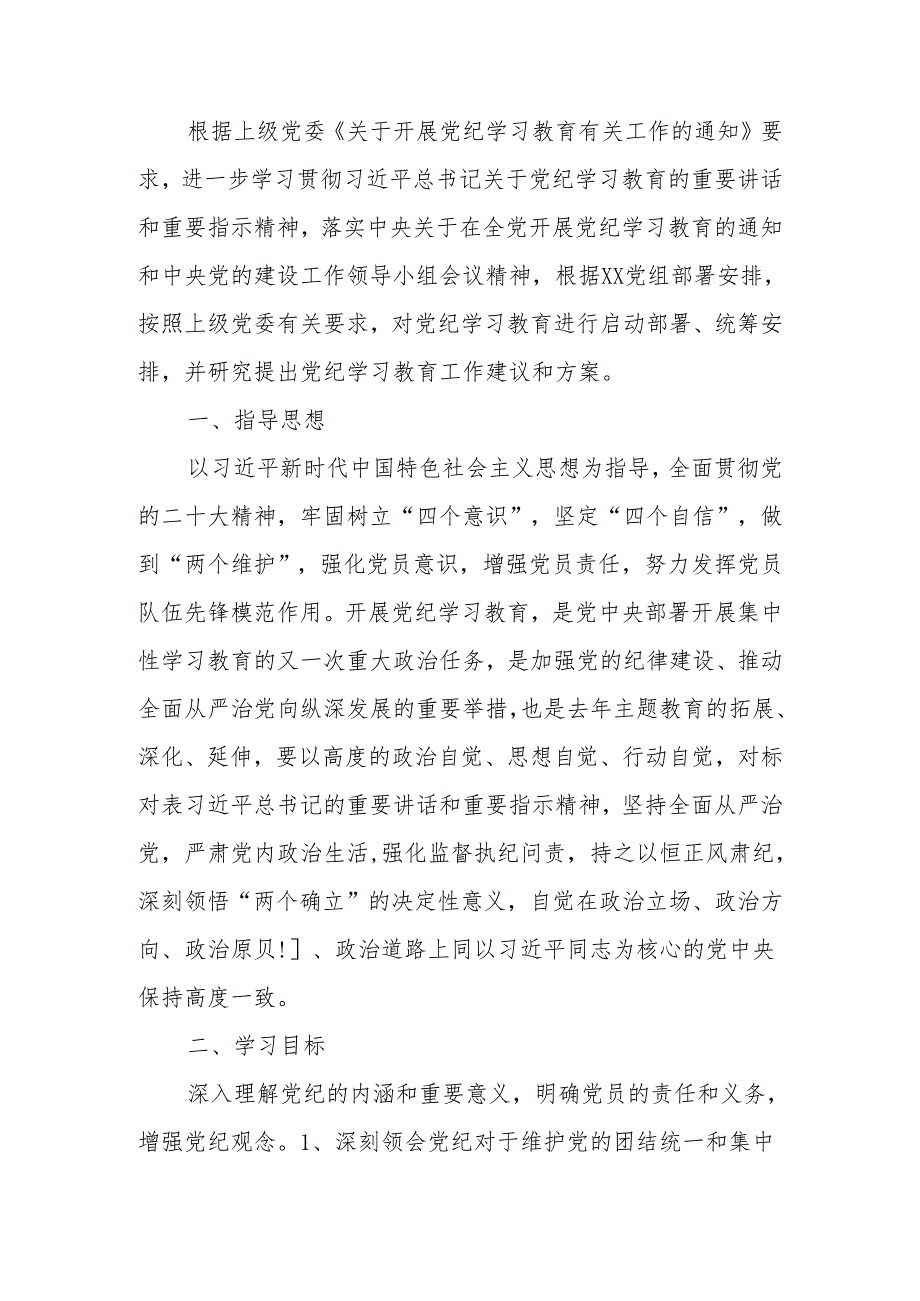 根据上级党委《关于开展党纪学习教育有关工作的通知》要
求，进一步学习贯彻习近平总书记关于党纪学习教育的重要讲话
和重要指示精神，落实中央关于在全党开展党纪学习教育的通知
和中央党的建设工作领导小组会议精神，根据XX党组部署安排，
按照上级党委有关要求，对党纪学习教育进行启动部署、统筹安
排，并研究提出党纪学习教育工作建议和方案。
一、指导思想
以习近平新时代中国特色社会主义思想为指导，全面贯彻党
的二十大精神，牢固树立“四个意识”，坚定“四个自信”，做
到“两个维护”，强化党员意识，增强党员责任，努力发挥党员
队伍先锋模范作用。开展党纪学习教育，是党中央部署开展集中
性学习教育的又一次重大政治任务，是加强党的纪律建设、推动
全面从严治党向纵深发展的重要举措，也是去年主题教育的拓展、
深化、延伸，要以高度的政治自觉、思想自觉、行动自觉，对标
对表习近平总书记的重要讲话和重要指示精神，坚持全面从严治
党，严肃党内政治生活,强化监督执纪问责，持之以恒正风肃纪，
深刻领悟“两个确立”的决定性意义，自觉在政治立场、政治方
向、政治原贝!］、政治道路上同以习近平同志为核心的党中央
保持高度一致。
二、学习目标
深入理解党纪的内涵和重要意义，明确党员的责任和义务，
增强党纪观念。1、深刻领会党纪对于维护党的团结统一和集中